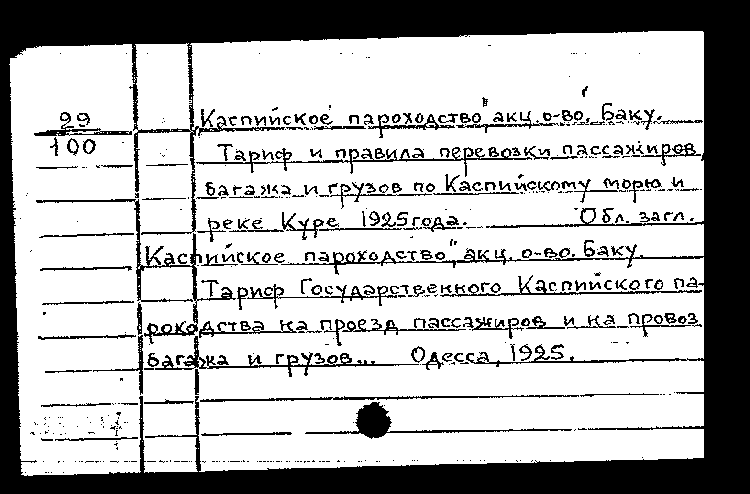 29
100
Каспийское пароходство", акц. о-во. Баку.
Тариф и правила перевозки пассажиров,
багажа и грузов по Каспийскому морю и
реке Куре 1925 года. Обл. загл.
Каспийское пароходство", акц. о-во. Баку.
Тариф Государственного Каспийского па-
роходства на проезд пассажиров и на провоз
багажа и грузов... Одесса, 1925.